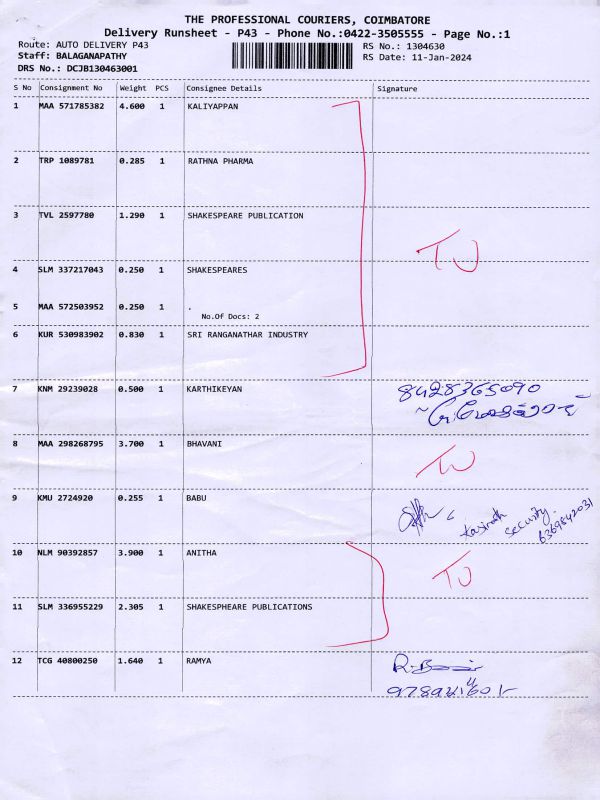 THE PROFESSIONAL COURIERS, COIMBATORE
Delivery Runsheet - P43 - Phone No.:0422-3505555 - Page No.:1
Route: AUTO DELIVERY P43
RS No.: 1304630
Staff: BALAGANAPATHY
RS Date: 11-Jan-2024
DRS No.: DCJB130463001
S No Consignment No Weight PCS Consignee Details Signature
1 MAA 571785382 4.600 1 KALIYAPPAN
2 TRP 1089781 0.285 1 RATHNA PHARMA
3 TVL 2597780 1.290 1 SHAKESPEARE PUBLICATION
TU
4 SLM 337217043 0.250 1 SHAKESPEARES
5 MAA 572503952 0.250 1 .
No.Of Docs: 2
6 KUR 530983902 0.830 1 SRI RANGANATHAR INDUSTRY
7 KNM 29239028 0.500 1 KARTHIKEYAN
8428365090
8 MAA 298268795 3.700 1 BHAVANI
TU
9 KMU 2724920 0.255 1 BABU
security.
6369842031
10 NLM 90392857 3.900 1 ANITHA
TU
11 SLM 336955229 2.305 1 SHAKESPHEARE PUBLICATIONS
12 TCG 40800250 1.640 1 RAMYA